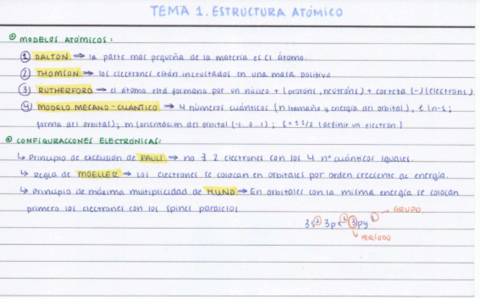 TEMA 1. ESTRUCTURA ATÓMICO
MODELOS ATÓMICOS:
1 DALTON → la parte más pequeña de la materia es el átomo.
2 THOMSON → los electrones están incrustados en una masa positiva
3 RUTHERFORD → el átomo está formado por un núcleo + (protons, neutrons) + corteza (-) (electrons)
4 MODELO MECANO-CUÁNTICO → 4 números cuánticos (n (tamaño y energía del orbital), l (n-1;
forma del orbital); m (orientación del orbital (-l..0..l); s = ± 1/2 (definir un electron)
CONFIGURACIONES ELECTRÓNICAS:
↳ Principio de exclusión de PAULI → no ∃ 2 electrones con los 4 nº cuánticos iguales.
↳ Regla de MOELLER → los electrones se colocan en orbitales por orden creciente de energía.
↳ Principio de máxima multiplicidad de HUND → En orbitales con la misma energía se colocan
primero los electrones con los spines paralelos.
GRUPO
PERÍODO